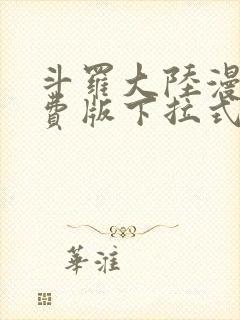 斗羅大陸漫
費版下拉式
華淮